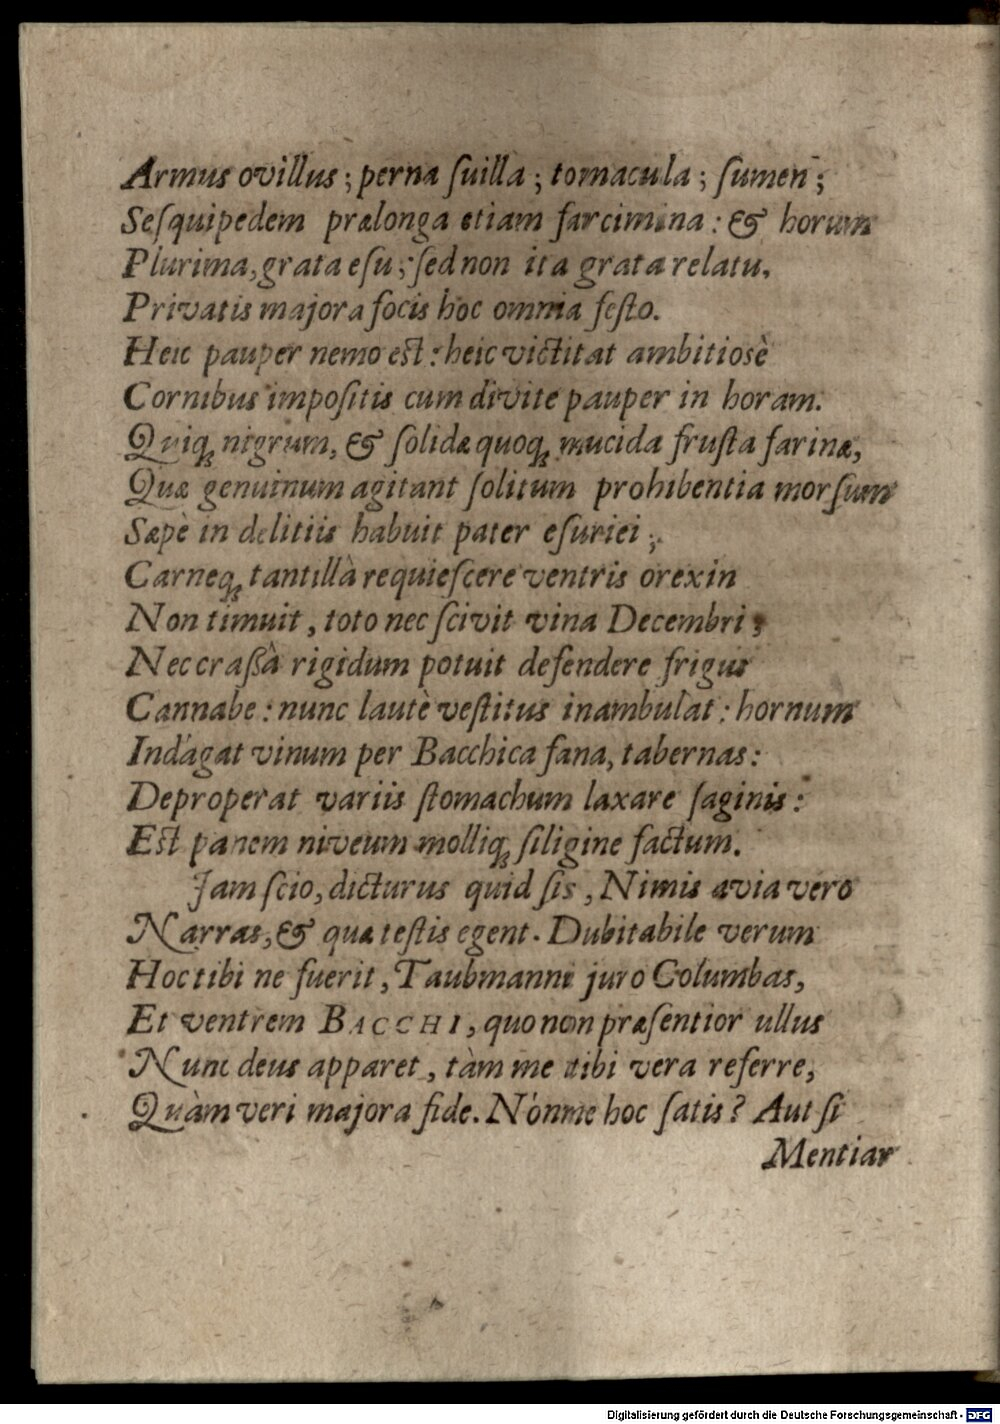 Armus ovillus; perna ſuilla; tomacula; ſumen;
Seſquipedem prælonga etiam farcimina: & horum
Plurima, grata eſu; ſed non ita grata relatu.
Privatis majora focis hoc omnia feſto.
Heic pauper nemo est: heic victitat ambitiosè
Cornibus impoſitis cum divite pauper in horam.
Quiq; nigrum, & ſolidæ quoq; mucida fruſta farinæ,
Quæ genuinum agitant ſolitum prohibentia morſum
Sæpè in delitiis habuit pater eſuriei;
Carneq; tantillà requieſcere ventris orexin
Non timuit, toto nec ſcivit vina Decembri;
Nec craßâ rigidum potuit defendere frigus
Cannabe: nunc lautè veſtitus inambulat: hornum
Indagat vinum per Bacchica fana, tabernas:
Deproperat variis ſtomachum laxare ſaginis:
Est panem niveum molliq; ſiligine factum.
Jam ſcio, dicturus quid ſis, Nimis avia vero
Narras, & quæ teſtis egent. Dubitabile verum
Hoc tibi ne fuerit, Taubmanne juro Columbas,
Et ventrem BACCHI, quo non præſentior ullus
Nunc deus apparet, tàm me tibi vera referre,
Quàm veri majora fide. Nònne hoc ſatis? Aut ſi
Mentiar
Digitalisierung gefördert durch die Deutsche Forschungsgemeinschaft - DFG